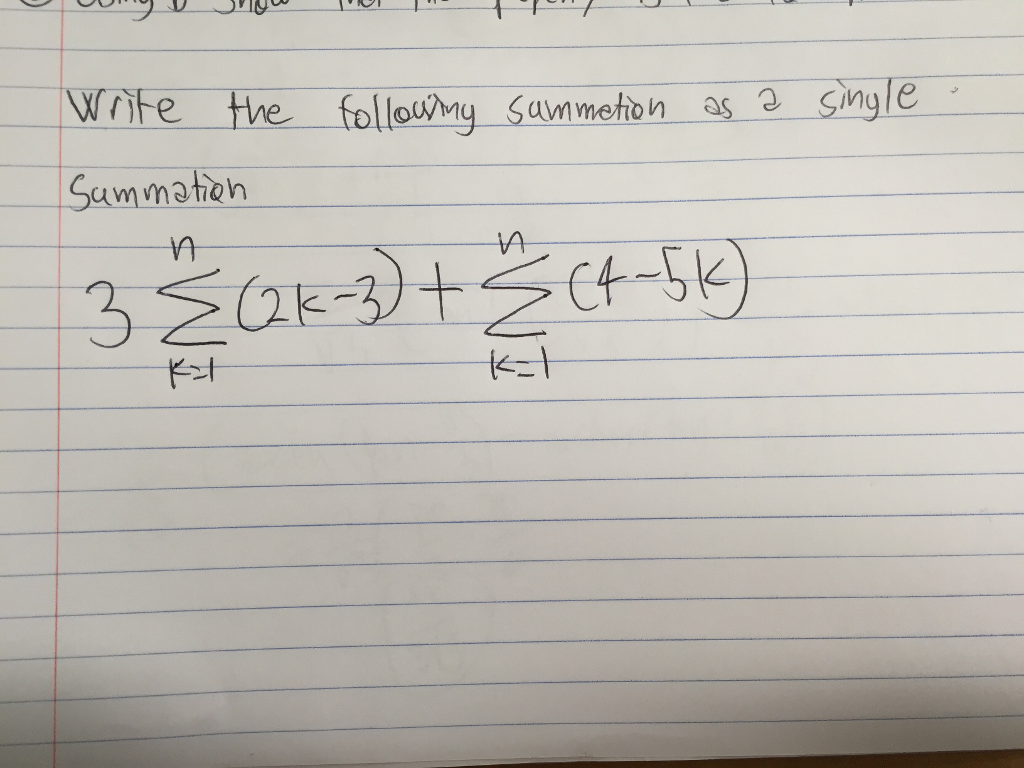 Write the following summetion as a single
Summation
3 n Σ k=1 (2k-3) + n Σ k=1 (4-5k)